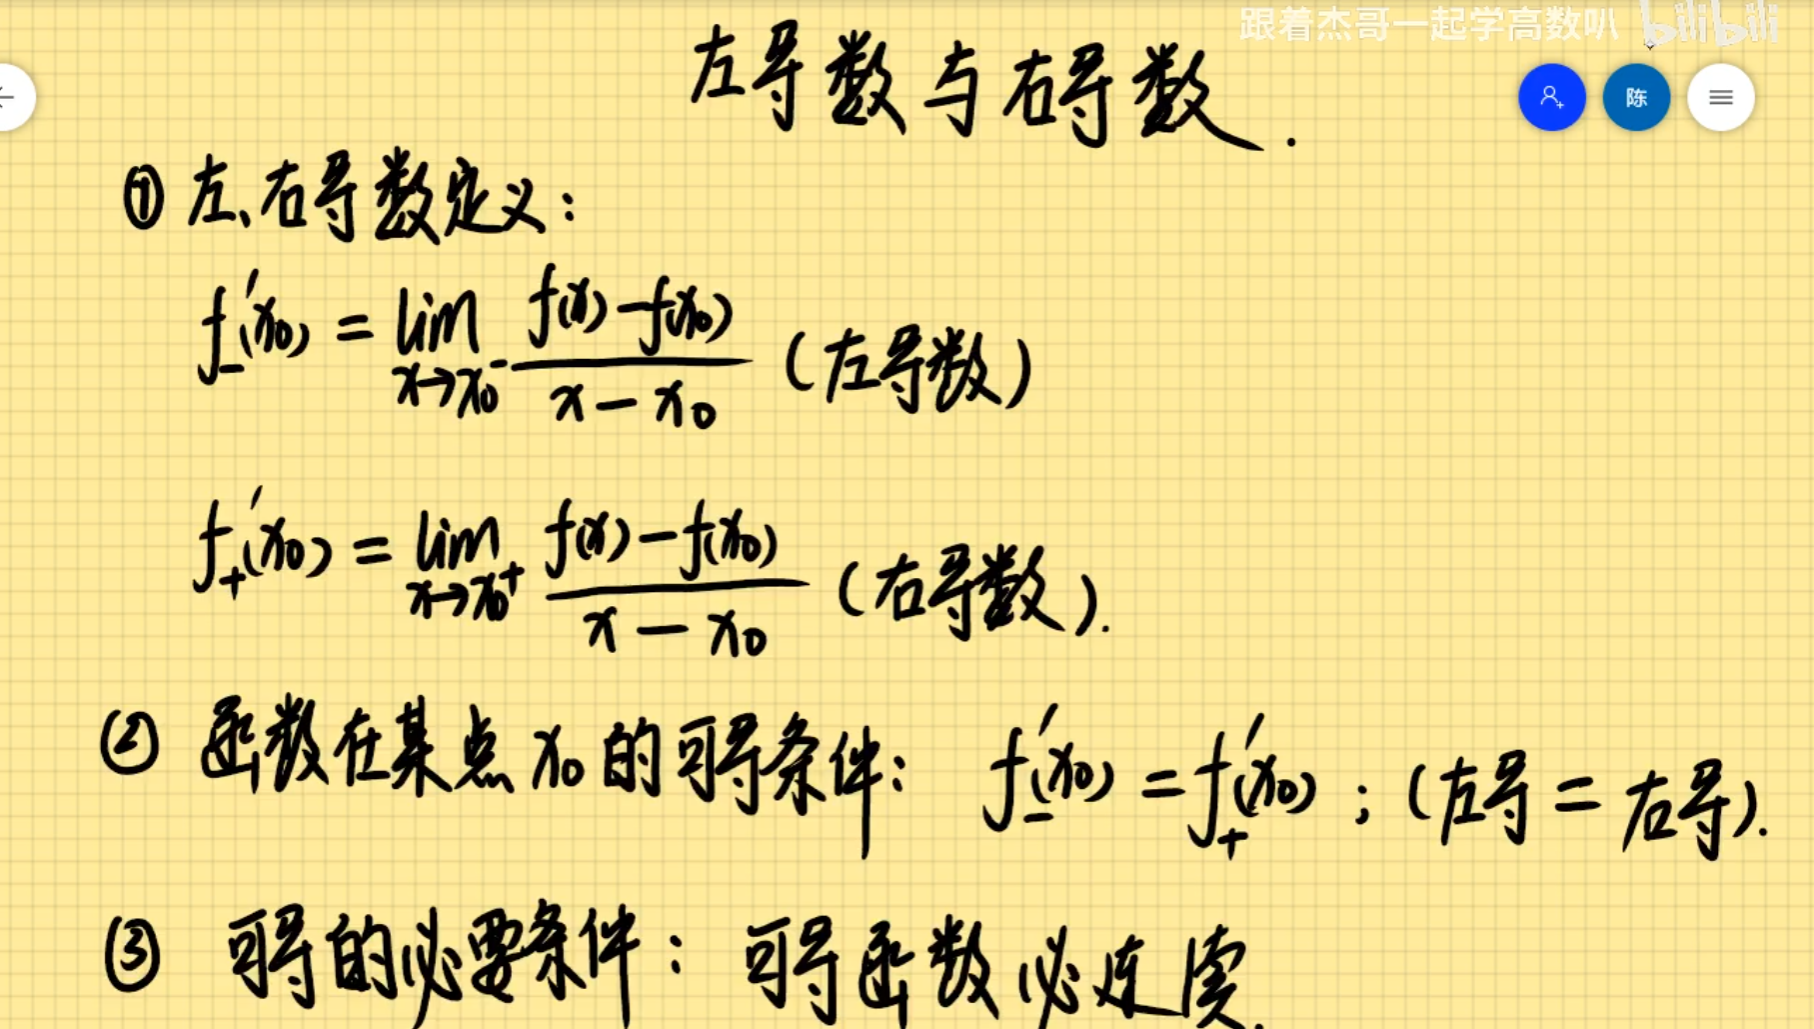 跟着杰哥一起学高数叭 bilibili
左导数与右导数.
陈
① 左、右导数定义:
f₋′(x₀) = lim x→x₀⁻ f(x)-f(x₀) / x-x₀ (左导数)
f₊′(x₀) = lim x→x₀⁺ f(x)-f(x₀) / x-x₀ (右导数).
② 函数在某点 x₀ 的可导条件: f₋′(x₀) = f₊′(x₀) ; (左导 = 右导).
③ 可导的必要条件: 可导函数必连续.